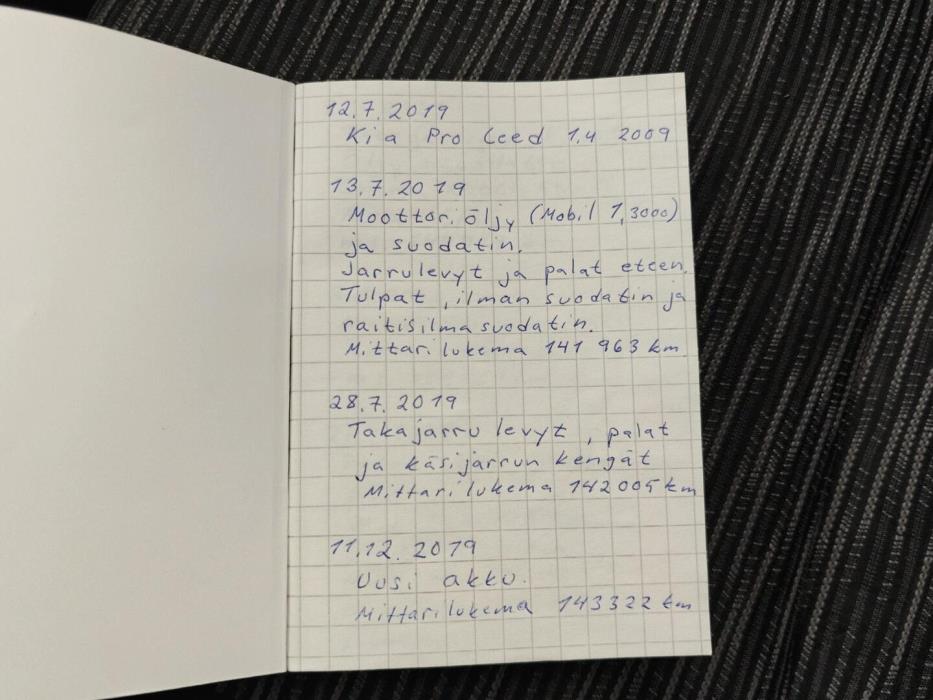 12.7.2019
Kia Pro Ceed 1,4 2009
13.7.2019
Moottoriöljy (Mobil 1, 3000)
ja suodatin.
Jarrulevyt ja palat eteen.
Tulpat, ilman suodatin ja
raitisilma suodatin.
Mittarilukema 141 963 km
28.7.2019
Takajarru levyt, palat
ja käsijarrun kengät
Mittarilukema 142005 km
11.12.2019
Uusi akku.
Mittarilukema 143322 km